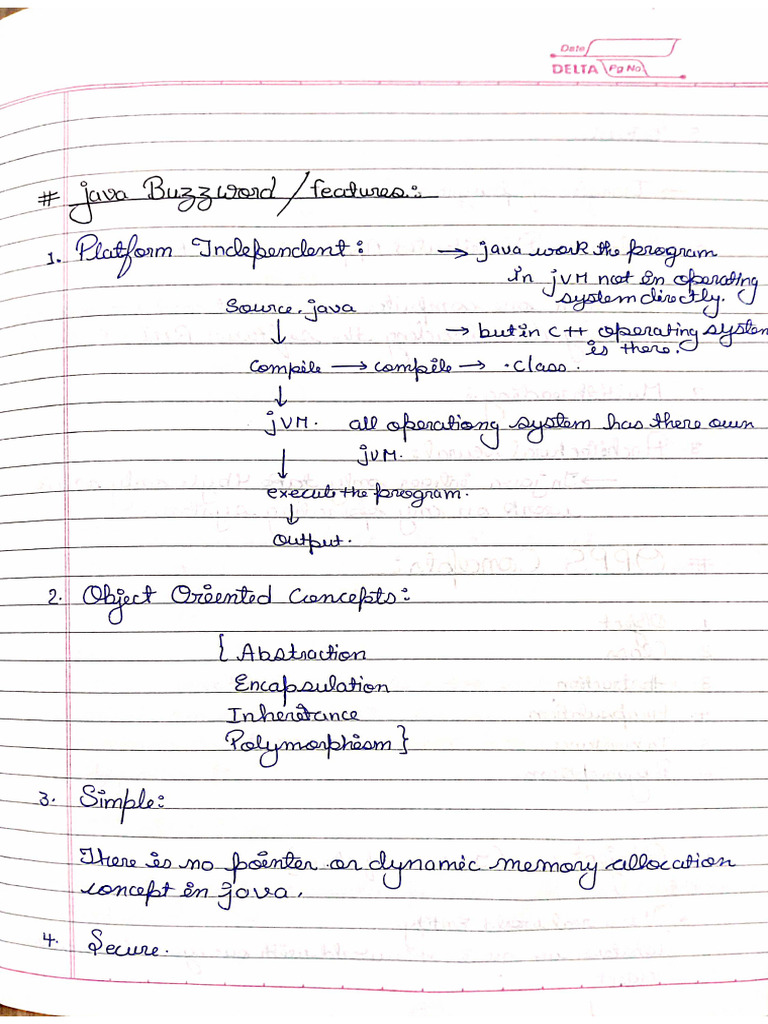 Date
DELTA Pg No
# java Buzzword / features:
1. Platform Independent: → java work the program
in jVM not in operating
system directly.
Source.java
→ but in C++ operating system
is there.
↓
Compile → compile → .class.
↓
jVM. all operationg system has there own
jVM.
↓
execute the program.
↓
output.
2. Object Oriented Concepts:
{ Abstraction
Encapsulation
Inheritance
Polymorphism }
3. Simple:
There is no pointer or dynamic memory allocation
concept in java.
4. Secure.